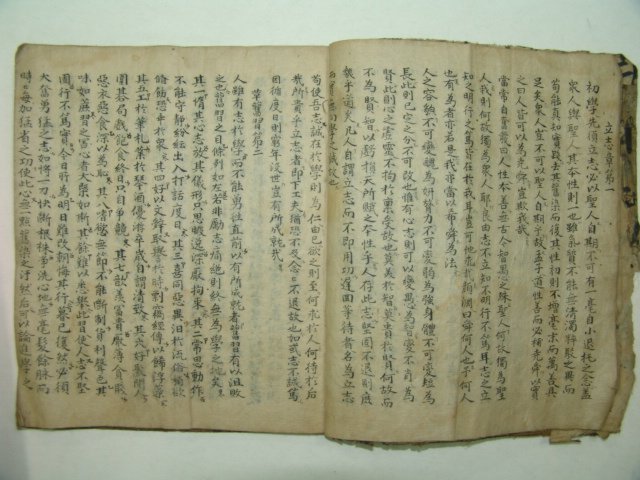 立志章第一
初學先須立志必以聖人自期不可有一毫自小退托之念盖
衆人與聖人其本性則一也雖氣質不能無清濁粹駁之異而
苟能真知實踐去其舊染而復其性初則不增毫末而萬善具
足矣衆人豈可不以聖人自期乎故孟子道性善而必稱堯舜以實
之曰人皆可以爲堯舜豈欺我哉
當常自奮發曰人性本善無古今智愚之殊聖人何故獨爲聖
人我則何故獨爲衆人耶良由志不立知不明行不篤耳志之立
知之明行之篤皆在我耳豈可他求哉顔淵曰舜何人也予何人
也有爲者亦若是我亦當以希舜爲法
人之容貌不可變醜爲姸膂力不可變弱爲強身體不可變短爲
長此則已定之分不可改也惟有心志則可以變愚爲智變不肖爲
賢此則心之虛靈不拘於稟受故也莫美於智莫貴於賢何故而
不爲賢智以虧損天所賦之本性乎人存此志堅固不退則庶
幾乎道矣凡人自謂立志而不卽用功遲回等待者名爲立志
而實無向學之誠故也
苟使吾志誠在於學則爲仁由己欲之則至何求於人何待於后
哉所貴乎立志者卽下工夫猶恐不及念念不退故也如或志不誠篤
因循度日則窮年沒世豈有所成就哉
革舊習章第二
人雖有志於學而不能勇往直前以有所成就者舊習有以沮敗
之也舊習之目條列如左若非勵志痛絶則終無爲學之地矣
其一惰其心志放其儀形只思暇逸深厭拘束其二常思動作
不能守靜紛紜出入打話度日其三喜同惡異汨於流俗稍欲
修飭恐乖於衆其四好以文辭取譽於時剽竊經傳以飾浮藻
其五工於筆札業於琴酒優游卒歲自謂清致其六好聚閒人
圍碁局戱飽食終日只自爭競其七歆羨富貴厭薄貧賤
惡衣惡食深以爲恥其八嗜慾無節不能斷制貨利聲色其
味如蔗習之害心者大槩如斯其餘難以悉擧此習使人志不堅
固行不篤實今日所爲明日難改朝悔其行暮已復然必須
大奮勇猛之志如將一刀快斷根株淨洗心地無毫髮餘脉而
時時每加猛省之功使此心無一點舊染之汙然後可以論進學之